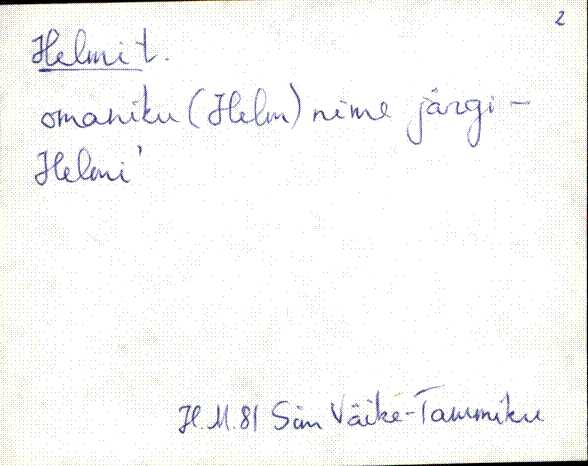 2
Helmi t.
omaniku (Helm) nime järgi –
Helmi'
H.M.81 Sim Väike-Tammiku